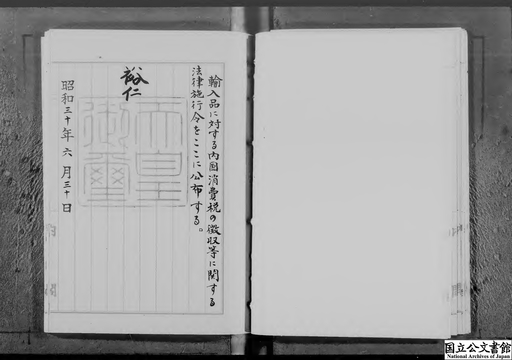 輸入品に対する内国消費税の徴収等に関する
法律施行令をここに公布する。
裕仁
天皇
御璽
昭和三十年六月三十日
国立公文書館
National Archives of Japan